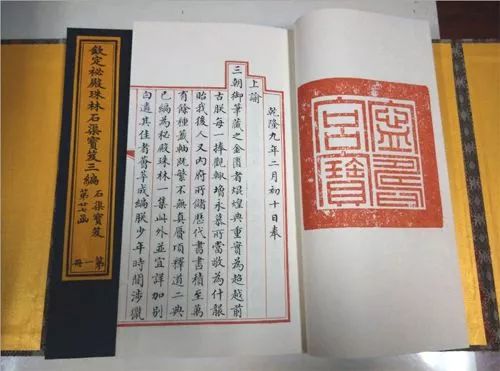 欽定秘殿珠林石渠寶笈三編
石渠寶笈
第廿七函
第一冊
乾隆九年二月初十日奉
上諭
三朝御筆藏之金匱者焜煌典重實為超越前
古朕每一捧觀永慕所當敬為什襲
貽我後人又內府所儲歷代書畫積至萬
有餘種籤軸既繁不無真贗項釋道二典
已編為秘殿珠林一集此外並宜詳加別
白遴其佳者薈萃成編朕少年時間涉獵